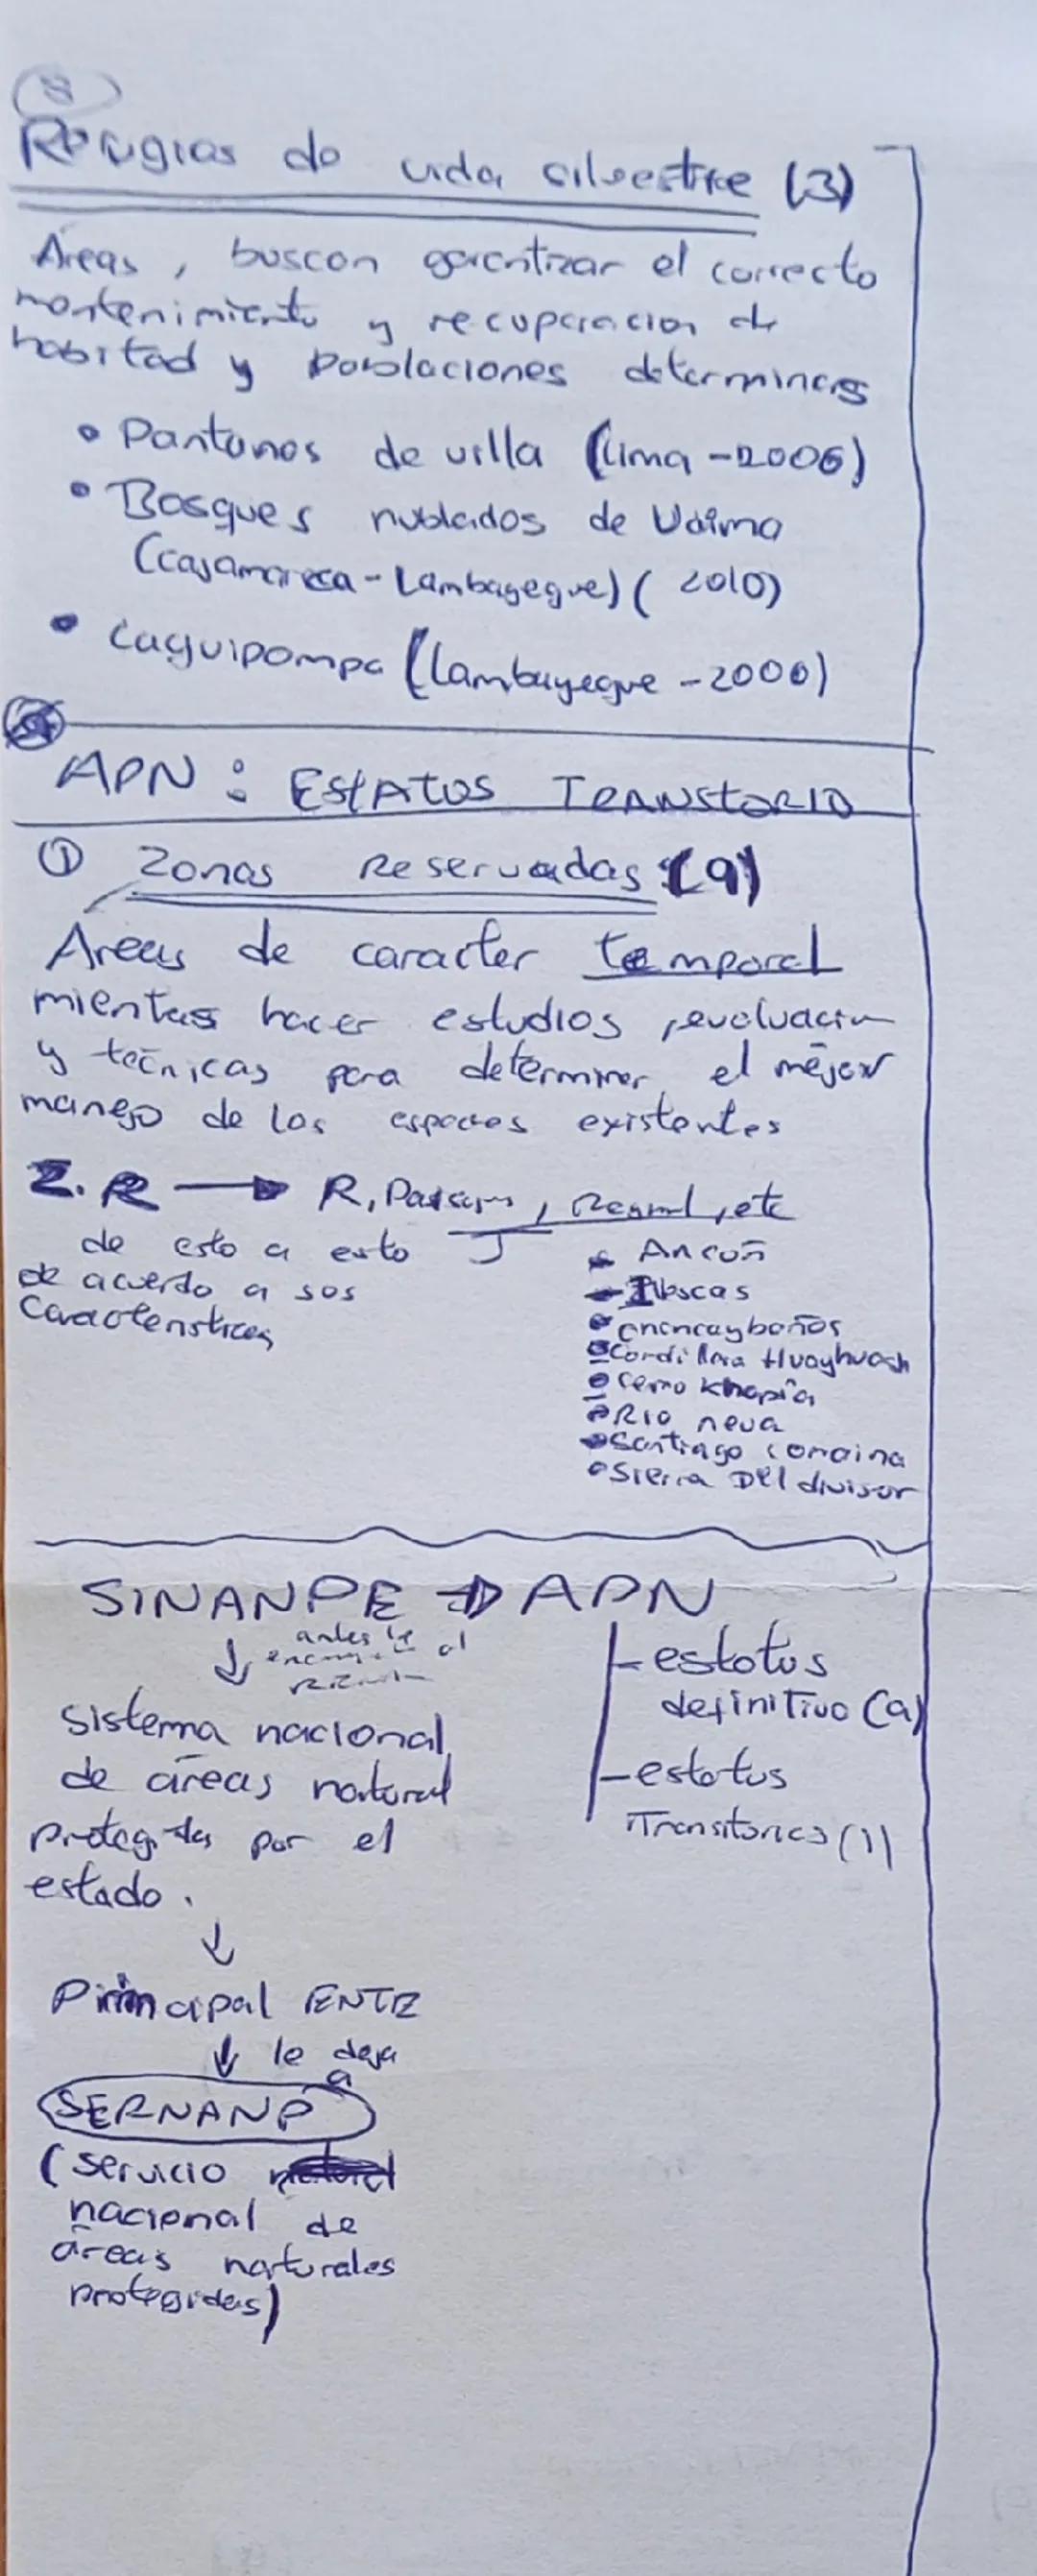 (8)
Refugias de vida silvestre (3)
Areas, buscan garentizar el correcto
mantenimiento y recuperacion de
habitad y poblaciones determinas
• Pantanos de villa (Lima - 2006)
• Bosques nublados de Udima
(Cajamarca - Lambayeque) (2010)
• Laquipampa (Lambayeque - 2006)
APN: EstAtus TRANStORIO
① Zonas Reservadas: (9)
Areas de caracter temporal
mientas hacer estudios, evaluacion
y tecnicas para determinar el mejor
manejo de las especies existentes
Z.R → R, Paisajis, R, etc
de esto a esto
de acuerdo a sos
Caracteristicas
Ancon
Illescas
Chancaybaños
Cordillera Huayhuash
Cerro Khapia
Rio neva
Santiago comaina
Sierra Del divisor
SINANPE ⇒ APN
↓ antes le al
sistema nacional
de áreas natural
protegidas por el
estado.
↓
Principal ENTE
↓ le deja
a
SERNANP
(servicio
nacional de
áreas naturales
protegidas)
estatus
definitivo (9)
estatus
Transitorico (1)